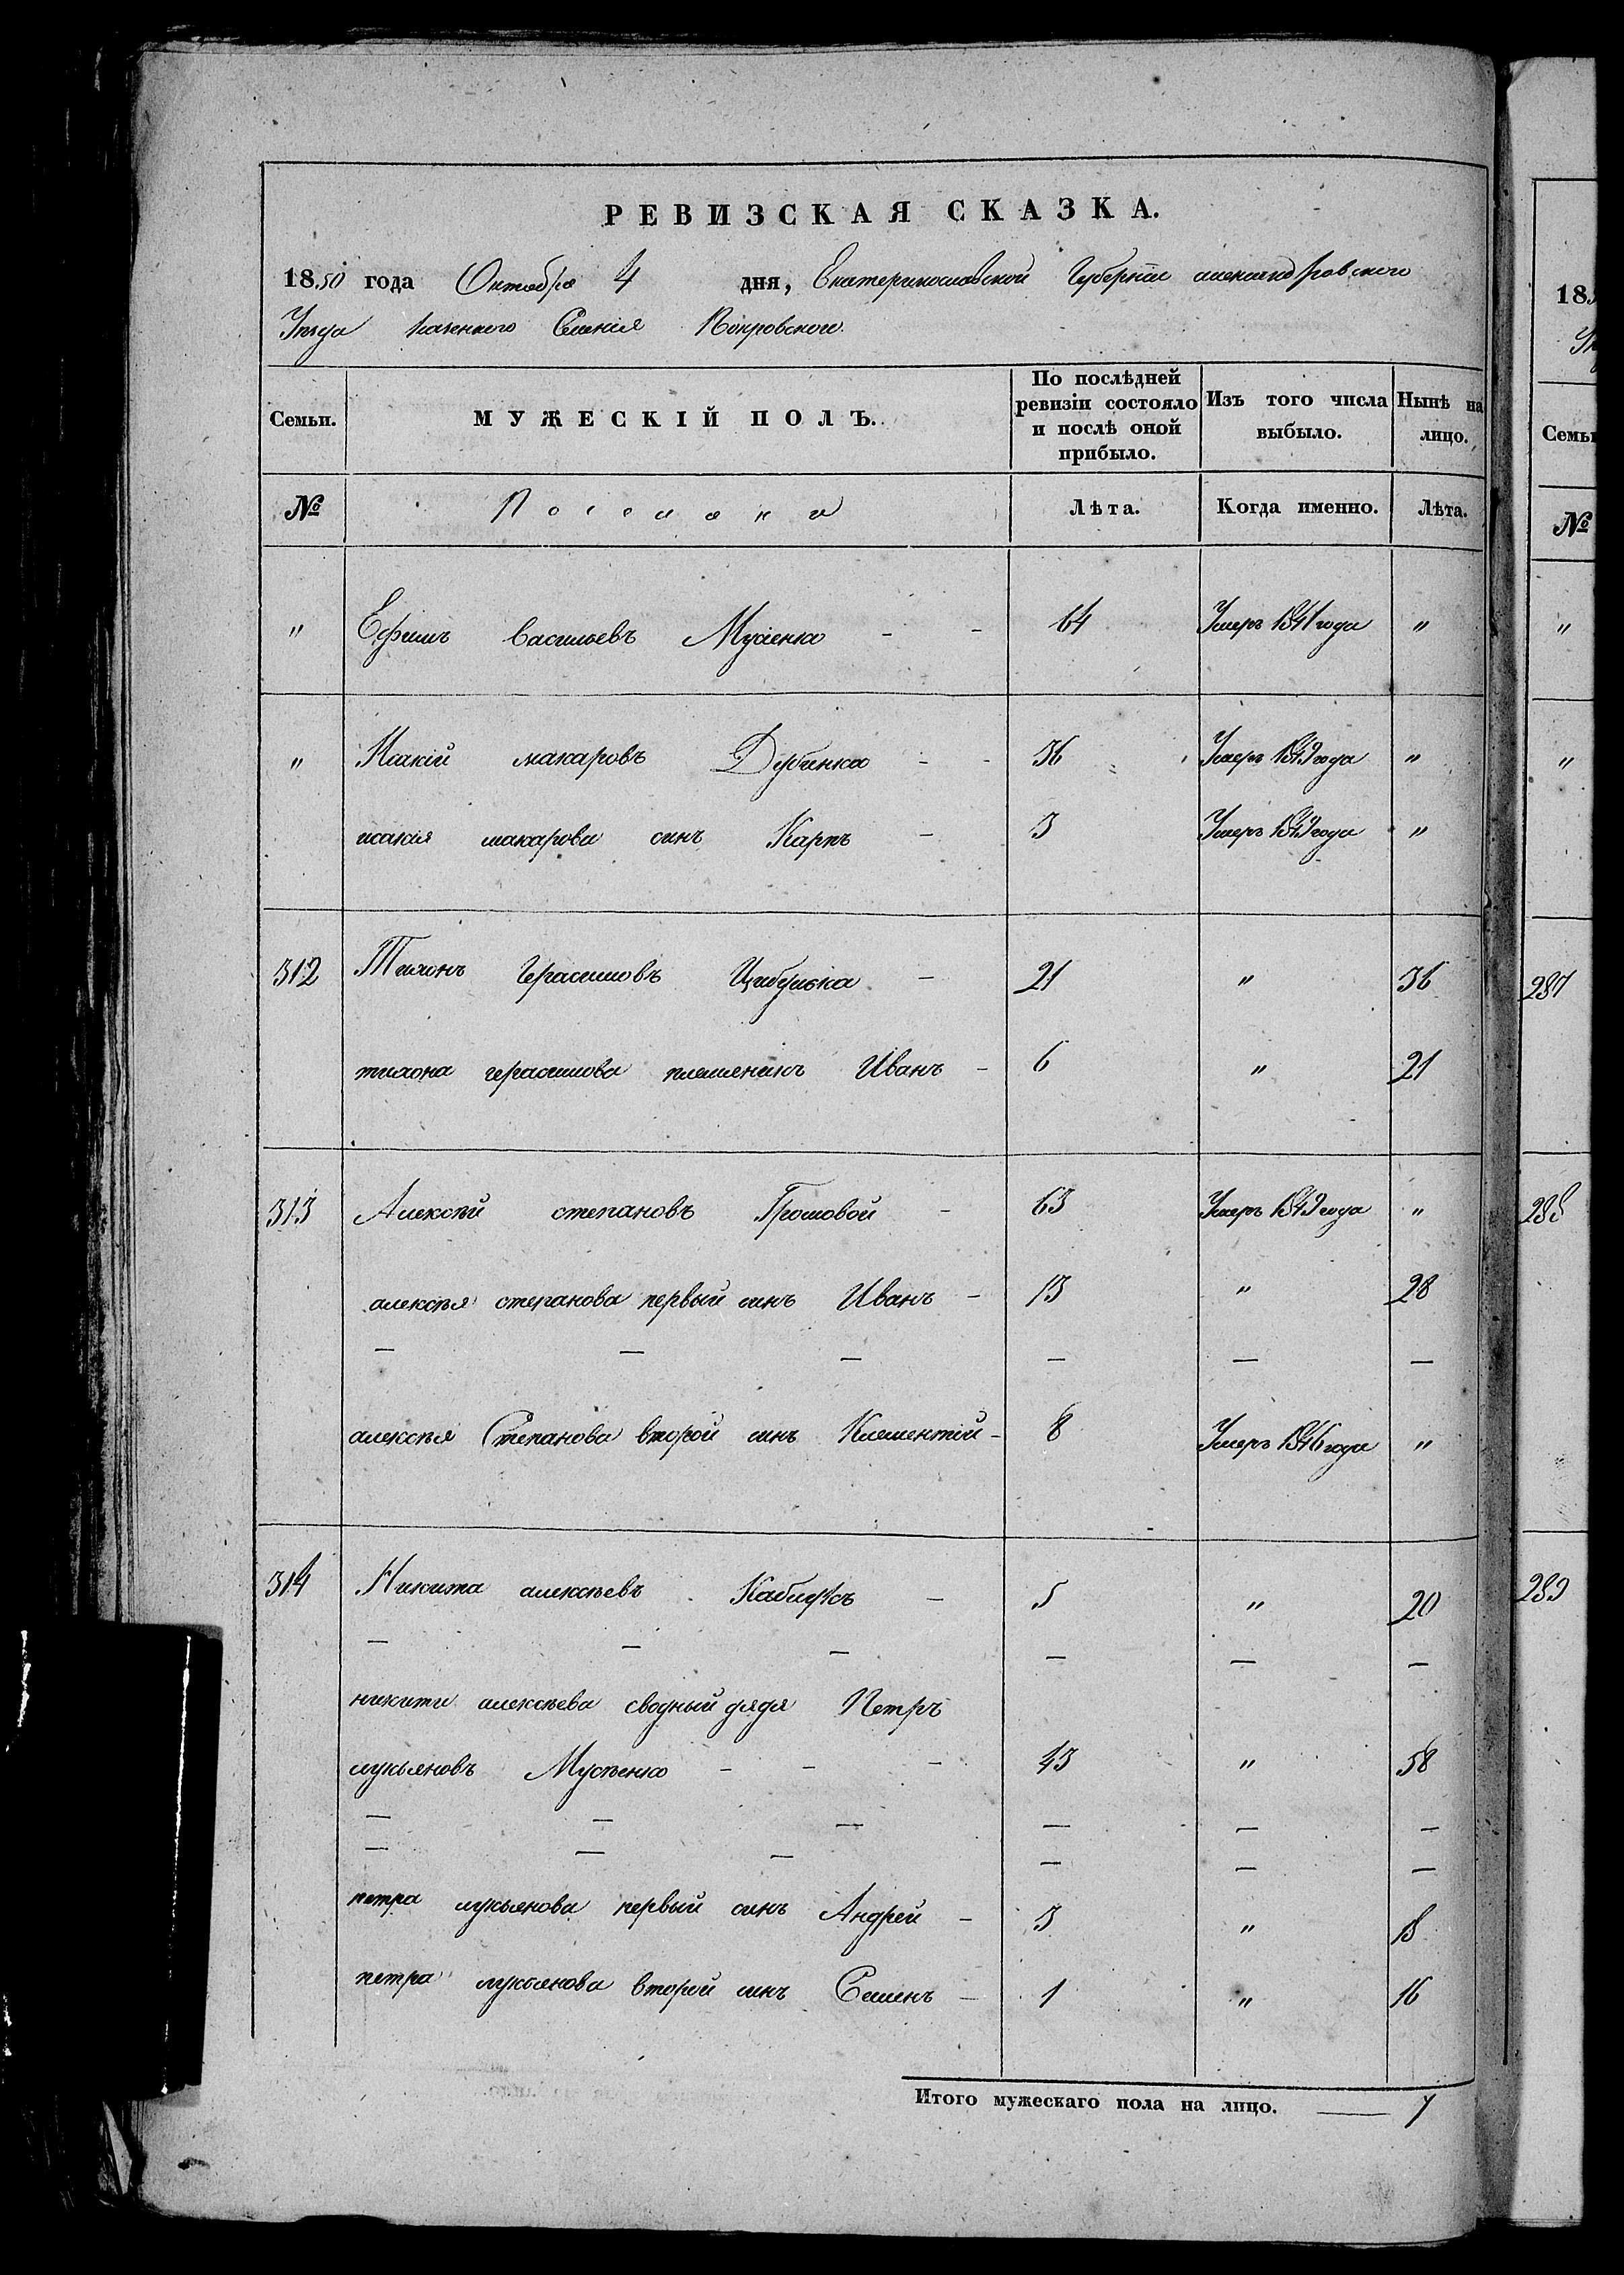 РЕВИЗСКАЯ СКАЗКА.
1850 года Октября 4 дня, Екатеринославской Губерніи александровского
Уезда казенного Селенія Покровского.
Семьи. МУЖЕСКІЙ ПОЛЪ. По послѣдней ревизіи состояло и послѣ оной прибыло. Изъ того числа выбыло. Нынѣ на лицо.
№ Поселяни Лѣта. Когда именно. Лѣта.
" Ефимъ Васильевъ Мусіенко - - 64 Умеръ 1841 года "
" Исакій макаровъ Дубинка - - 36 Умеръ 1849 года "
исакія макарова синъ Карпъ - 3 Умеръ 1849 года "
312 Тихонъ Герасимовъ Цибулька - 21 " 36
тихона герасимова племеникъ Иванъ - 6 " 21
313 Алексѣй степановъ Громовой - 63 Умеръ 1849 года "
алексѣя степанова первый синъ Иванъ - 13 " 28
— — — — — —
алексѣя Степанова второй синъ Климентій - 8 Умеръ 1846 года "
314 Никита алексѣевъ - 5 " 20
— — — — — —
никити алексѣева сводный дядя Петръ
лукьяновъ Мусѣенко - - - 43 " 58
— — — — — —
— — — — — —
петра лукьянова первый синъ Андрей - 3 " 18
петра лукьянова второй синъ Семенъ - 1 " 16
Итого мужескаго пола на лицо. — 7
18
Семьи
№
"
"
287
288
289